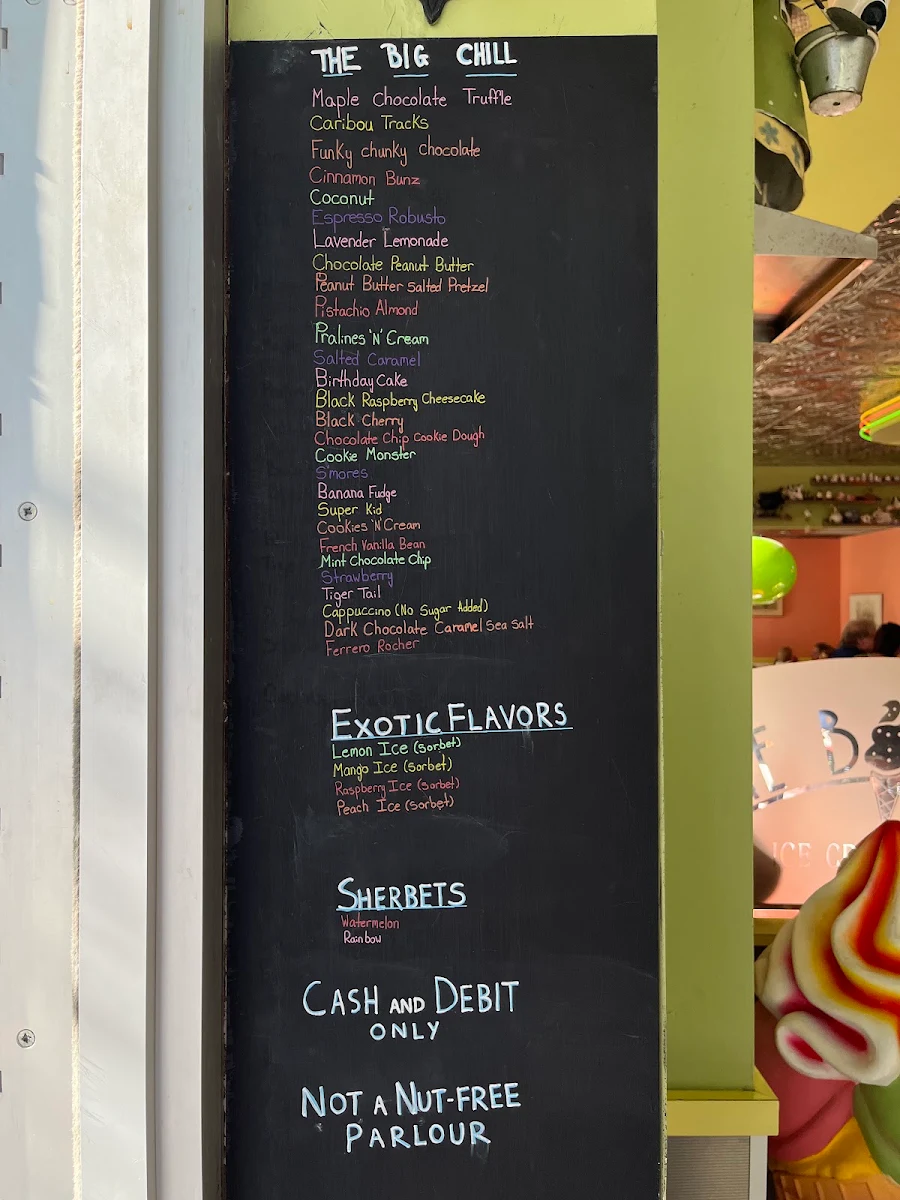 THE BIG CHILL
Maple Chocolate Truffle
Caribou Tracks
Funky chunky chocolate
Cinnamon Bunz
Coconut
Espresso Robusto
Lavender Lemonade
Chocolate Peanut Butter
Peanut Butter Salted Pretzel
Pistachio Almond
Pralines 'N' Cream
Salted Caramel
Birthday Cake
Black Raspberry Cheesecake
Black Cherry
Chocolate Chip Cookie Dough
Cookie Monster
S'mores
Banana Fudge
Super Kid
Cookies 'N' Cream
French Vanilla Bean
Mint Chocolate Chip
Strawberry
Tiger Tail
Cappuccino (No Sugar Added)
Dark Chocolate Caramel Sea Salt
Ferrero Rocher
EXOTIC FLAVORS
Lemon Ice (Sorbet)
Mango Ice (Sorbet)
Raspberry Ice (Sorbet)
Peach Ice (Sorbet)
SHERBETS
Watermelon
Rainbow
CASH AND DEBIT
ONLY
NOT A NUT-FREE
PARLOUR
E B
ICE